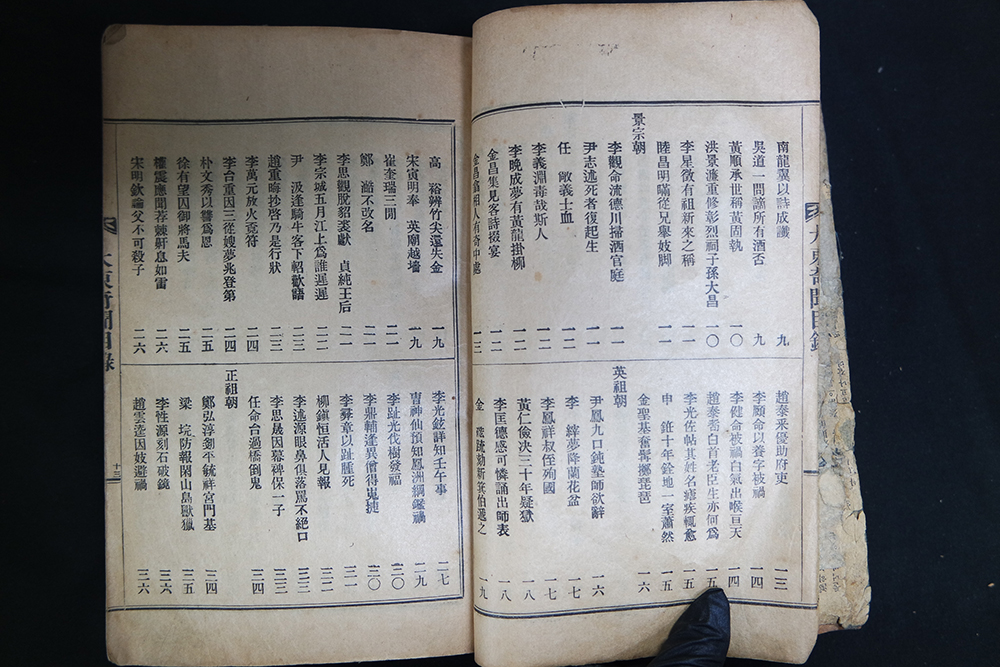 大東奇聞目錄
南龍翼以詩成讖 九
吳道一問諦所有酒否 九
黃順承世稱黃固執 一〇
洪景濂重修彰烈祠子孫大昌 一〇
李星徵有祖新來之稱 一一
睦昌明嚇從兄舉妓脚 一一
景宗朝
李觀命流德川掃酒官庭 一一
尹志述死者復起生 一一
任 敞義士血 一二
李義淵毒哉斯人 一二
李晚成夢有黃龍掛柳 一二
金昌集見客詩掇宴 一二
金昌翕相人有奇中處 一三
趙泰采優助府吏 一三
李頤命以養字被禍 一四
李健命被禍白氣出喉亘天 一四
趙泰耉白首老臣生亦何爲 一五
李光佐帖其姓名瘧疾輒愈 一五
申 銋十年銓地一室蕭然 一五
金聖基奮髥擲琵琶 一六
英祖朝
尹鳳九口鈍塾師欲辭 一六
李 縡夢降蘭花盆 一七
李鳳祥叔侄殉國 一七
黃仁儉决三十年疑獄 一八
李匡德感可憐誦出師表 一八
金 疏劾新箕伯遞之 一九
高 裕辨竹尖還失金 一九
宋寅明奉 英廟越墻 一九
崔奎瑞三閒 二一
鄭 澔不改名 二一
李思觀脫貂裘獻 貞純王后 二一
李宗城五月江上爲誰遲遲 二二
尹 汲逢騎牛客下軺歡語 二三
趙重晦抄啓乃是行狀 二三
李萬元放火竟符 二四
李台重因三從嫂夢兆登第 二四
朴文秀以讐爲恩 二五
徐有望囚御將馬夫 二五
權震應聞荐棘鼾息如雷 二六
宋明欽論父不可殺子 二六
李光鉉詳知壬午事 二七
曺神仙預知鳳洲綱鑑禍 二九
李趾光伐樹發福 三〇
李鼎輔逢異僧得鬼捷 三〇
李彛章以趾腫死 三一
柳鎭恒活人見報 三二
李述源眼鼻俱落罵不絕口 三三
李思晟因幕裨保一子 三三
任命台過橋倒鬼 三四
正祖朝
鄭弘淳剏平毓祥宮門基 三四
梁 垸防報閑山島獸獵 三五
李性源刻石破鏡 三六
趙雲逵因妓避禍 三六
大東奇聞目錄
十三